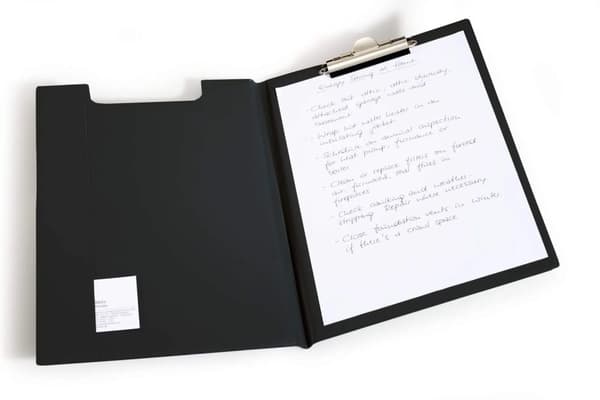 Energy Saving at Home
- Check out attic, attic
detached garage walls and
basement
- Wrap hot water heater in an
insulating jacket
- Schedule an annual inspection
for heat pump, furnace or
- Clean or replace filters on forced
air furnaces, and flues in
fireplaces
- Check caulking and weather-
stripping. Repair where necessary
- Close foundation vents in winter
if there's a crawl space.